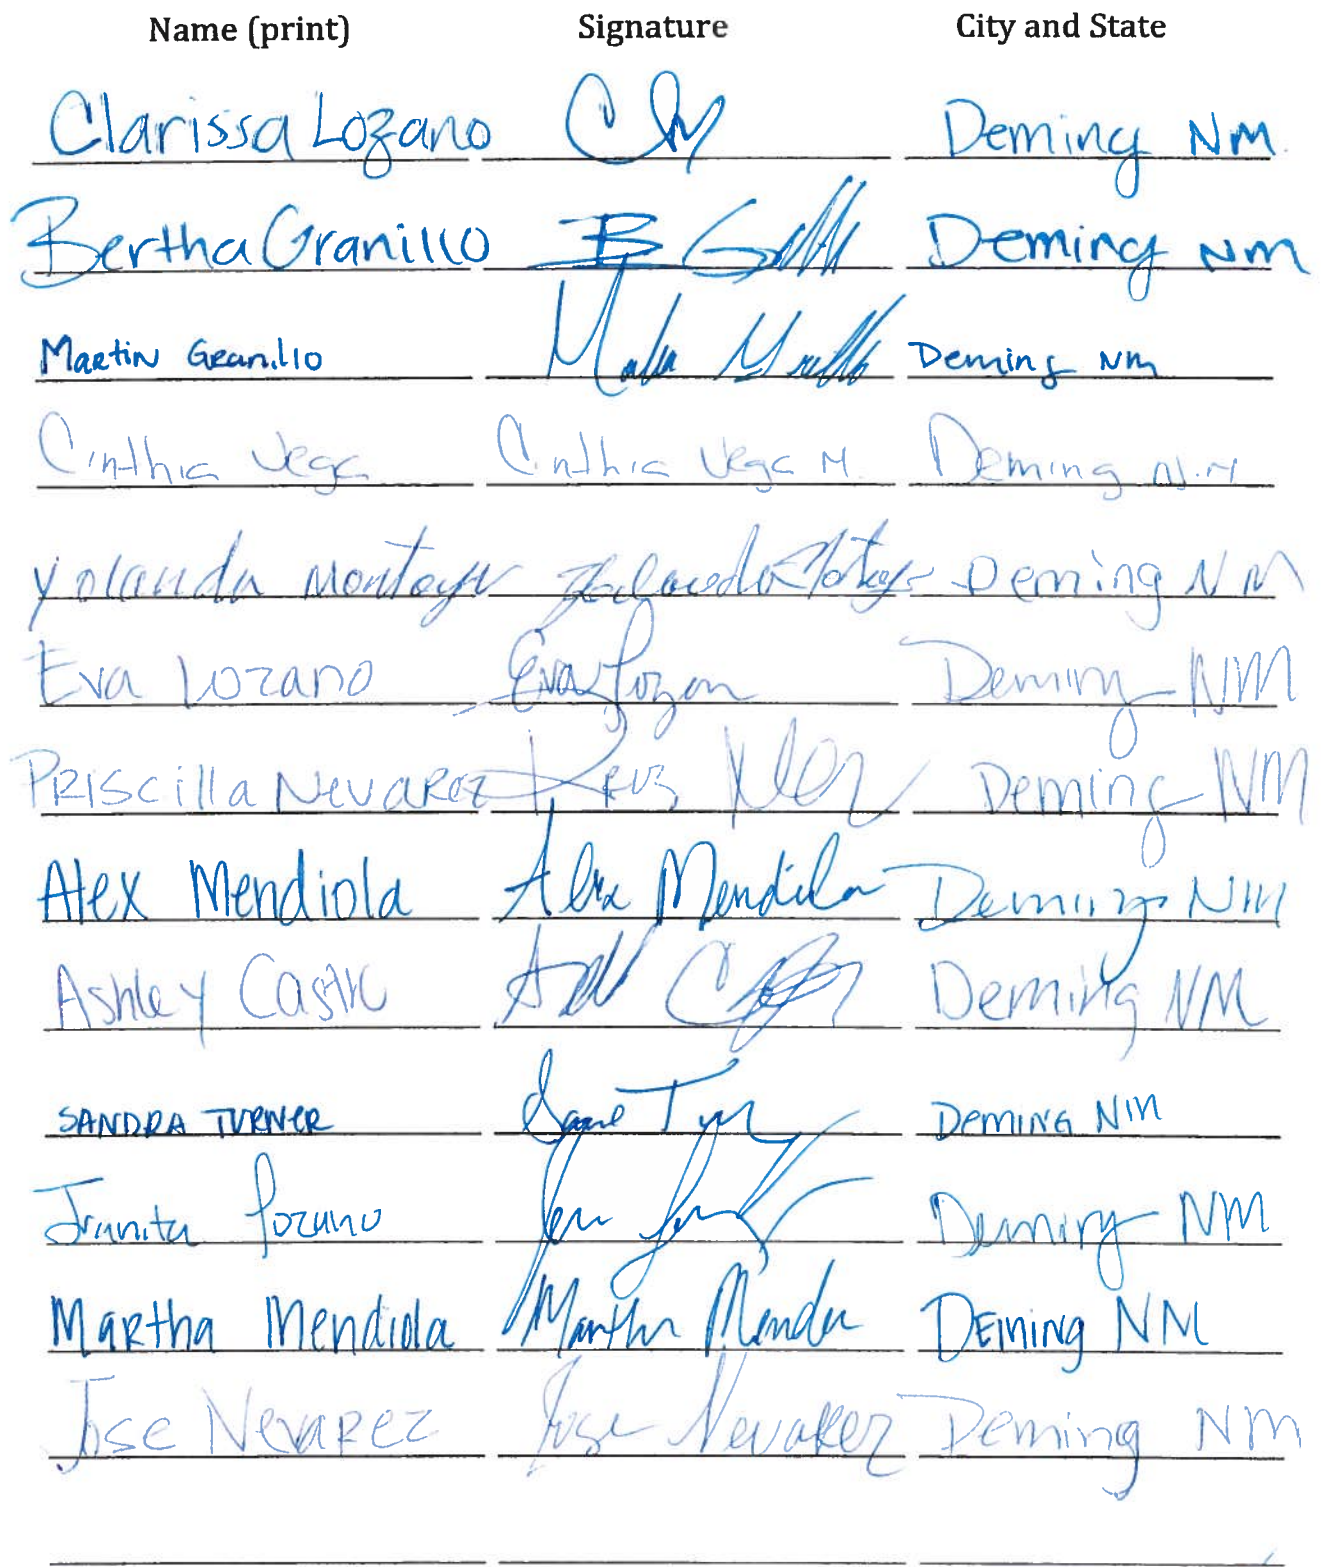 Name (print) Signature City and State
Clarissa Lozano Deming NM
Bertha Granillo B Deming NM
Martin Granillo Deming NM
Cinthia Vega Cinthia Vega M. Deming N.M
Yolanda Montoya Deming NM
Eva Lozano Eva Lozano Deming NM
Priscilla Nevarez Deming NM
Alex Mendiola Alex Mendiola Deming NM
Ashley Castro Deming NM
SANDRA TURNER Deming NM
Juanita Lozano Deming NM
Martha Mendiola Martha Deming NM
Jose Nevarez Jose Nevarez Deming NM